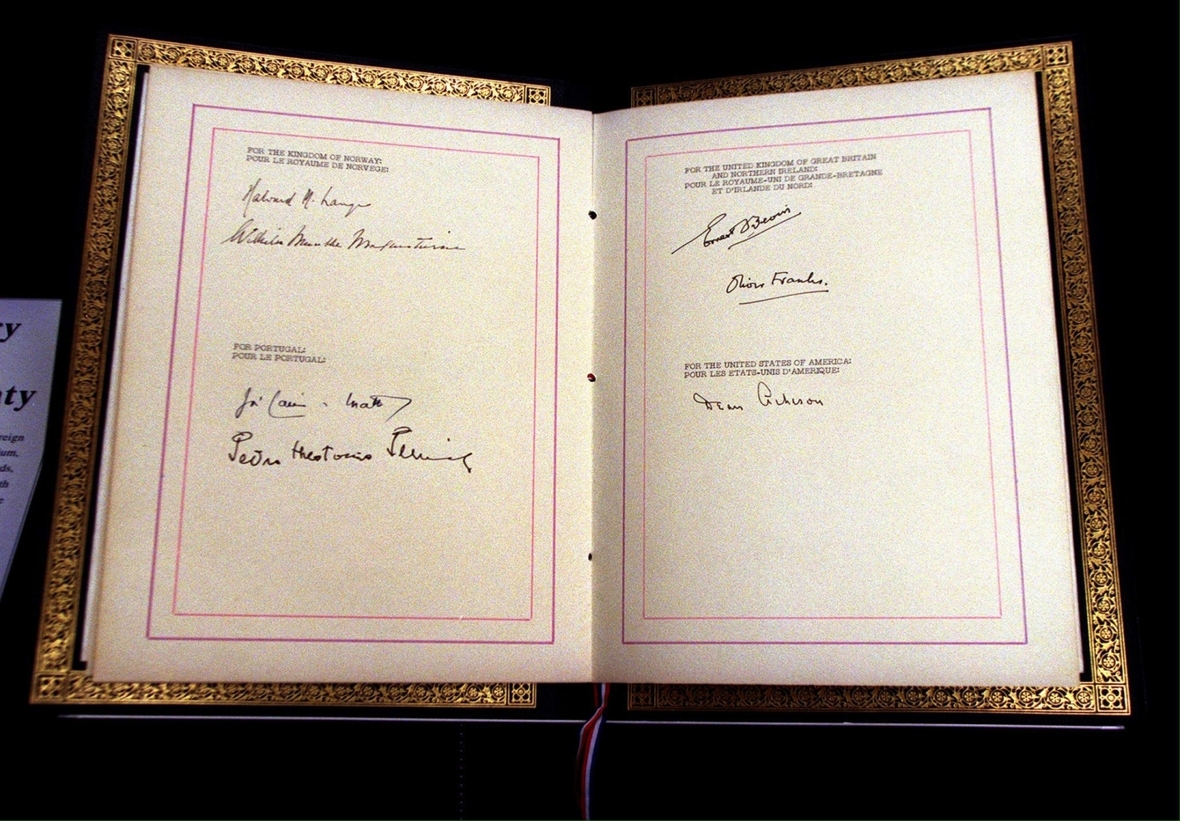 y
nty
reign
ium,
ds,
th
e
FOR THE KINGDOM OF NORWAY:
POUR LE ROYAUME DE NORVEGE:
Halvard M. Lange
Wilhelm Munthe Morgenstierne
FOR PORTUGAL:
POUR LE PORTUGAL:
Pedro Theotonio Pereira
FOR THE UNITED KINGDOM OF GREAT BRITAIN
AND NORTHERN IRELAND:
POUR LE ROYAUME-UNI DE GRANDE-BRETAGNE
ET D'IRLANDE DU NORD:
Ernest Bevin
Oliver Franks.
FOR THE UNITED STATES OF AMERICA:
POUR LES ETATS-UNIS D'AMERIQUE:
Dean Acheson